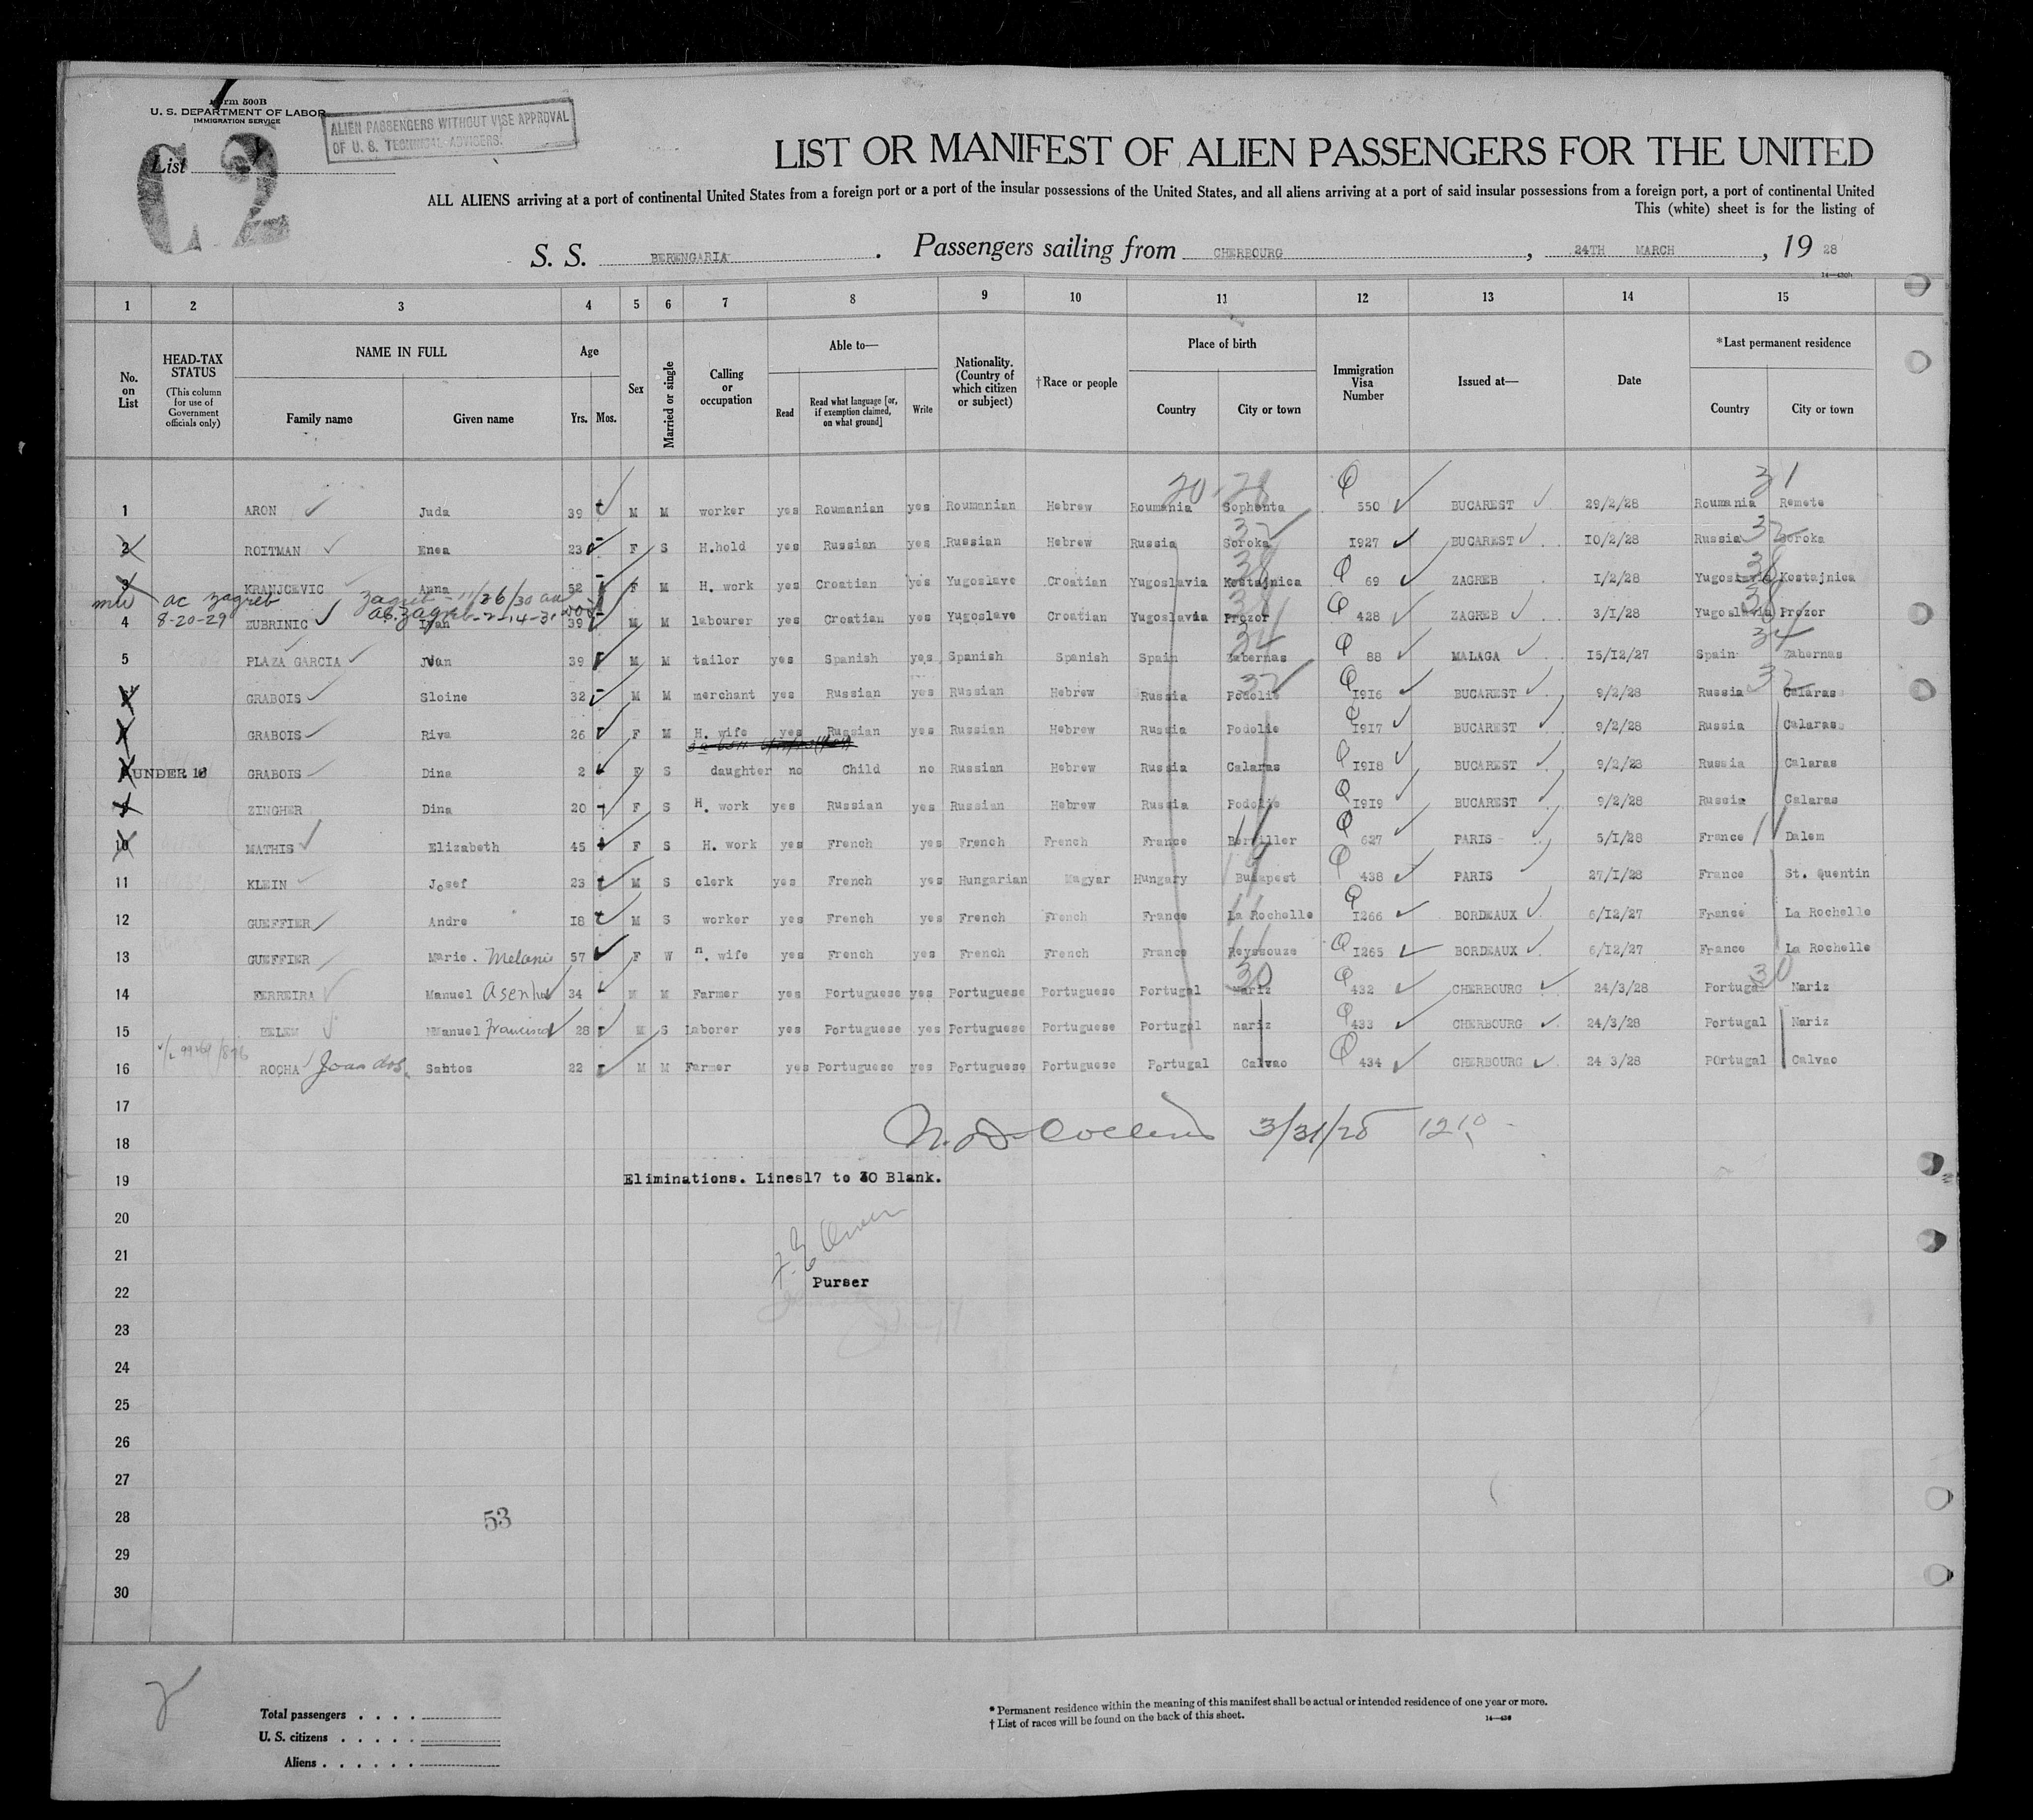 Form 500B
U. S. DEPARTMENT OF LABOR
IMMIGRATION SERVICE
ALIEN PASSENGERS WITHOUT VISE APPROVAL
OF U. S. TECHNICAL ADVISERS.
List
C2
LIST OR MANIFEST OF ALIEN PASSENGERS FOR THE UNITED
ALL ALIENS arriving at a port of continental United States from a foreign port or a port of the insular possessions of the United States, and all aliens arriving at a port of said insular possessions from a foreign port, a port of continental United
This (white) sheet is for the listing of
S. S. BERENGARIA. Passengers sailing from CHERBOURG, 24TH MARCH, 19 28
1 2 3 4 5 6 7 8 9 10 11 12 13 14 15
No. on List
HEAD-TAX STATUS (This column for use of Government officials only)
NAME IN FULL Family name Given name
Age Yrs. Mos.
Sex
Married or single
Calling or occupation
Able to— Read Read what language [or, if exemption claimed, on what ground] Write
Nationality. (Country of which citizen or subject)
†Race or people
Place of birth Country City or town
Immigration Visa Number
Issued at—
Date
*Last permanent residence Country City or town
20 28 31
1 ARON Juda 39 M M worker yes Roumanian yes Roumanian Hebrew Roumania Sophenta 550 BUCAREST 29/2/28 Roumania Remete
2 ROITMAN Enea 23 F S H.hold yes Russian yes Russian Hebrew Russia Soroka 1927 BUCAREST 10/2/28 Russia 32 Soroka
3 KRANJCEVIC Anna 52 F M H. work yes Croatian yes Yugoslave Croatian Yugoslavia Kostajnica 69 ZAGREB 1/2/28 Yugoslavia Kostajnica
ac zagreb zagreb - 11/26/30
8-20-29 ac. zagreb - 2-14-31
4 ZUBRINIC Ivan 39 M M labourer yes Croatian yes Yugoslave Croatian Yugoslavia Prozor 428 ZAGREB 3/1/28 Yugoslavia Prozor
5 PLAZA GARCIA Juan 39 M M tailor yes Spanish yes Spanish Spanish Spain Tabernas 88 MALAGA 15/12/27 Spain Tabernas
6 GRABOIS Sloine 32 M M merchant yes Russian yes Russian Hebrew Russia Podolie 1916 BUCAREST 9/2/28 Russia Calaras
7 GRABOIS Riva 26 F M H. wife yes Russian yes Russian Hebrew Russia Podolie 1917 BUCAREST 9/2/28 Russia Calaras
8 UNDER 16 GRABOIS Dina 2 F S daughter no Child no Russian Hebrew Russia Calaras 1918 BUCAREST 9/2/28 Russia Calaras
9 ZINGHER Dina 20 F S H. work yes Russian yes Russian Hebrew Russia Podolie 1919 BUCAREST 9/2/28 Russia Calaras
10 MATHIS Elizabeth 45 F S H. work yes French yes French French France 627 PARIS 5/1/28 France Dalem
11 KLEIN Josef 23 M S clerk yes French yes Hungarian Magyar Hungary Budapest 438 PARIS 27/1/28 France St. Quentin
12 GUEFFIER Andre 18 M S worker yes French yes French French France La Rochelle 1266 BORDEAUX 6/12/27 France La Rochelle
13 GUEFFIER Marie. Melanie 57 F W H. wife yes French yes French French France Reyssouze 1265 BORDEAUX 6/12/27 France La Rochelle
14 FERREIRA Manuel 34 M M Farmer yes Portuguese yes Portuguese Portuguese Portugal Nariz 432 CHERBOURG 24/3/28 Portugal Nariz
15 BELEM Manuel Francisco 28 M S Laborer yes Portuguese yes Portuguese Portuguese Portugal nariz 433 CHERBOURG 24/3/28 Portugal Nariz
16 ROCHA Joao dos Santos 22 M M Farmer yes Portuguese yes Portuguese Portuguese Portugal Calvao 434 CHERBOURG 24 3/28 Portugal Calvao
17
18 3/31/28 12 10
19 Eliminations. Lines17 to 30 Blank.
20
21
22 Purser
23
24
25
26
27
28 53
29
30
Total passengers
U. S. citizens
Aliens
* Permanent residence within the meaning of this manifest shall be actual or intended residence of one year or more.
† List of races will be found on the back of this sheet.